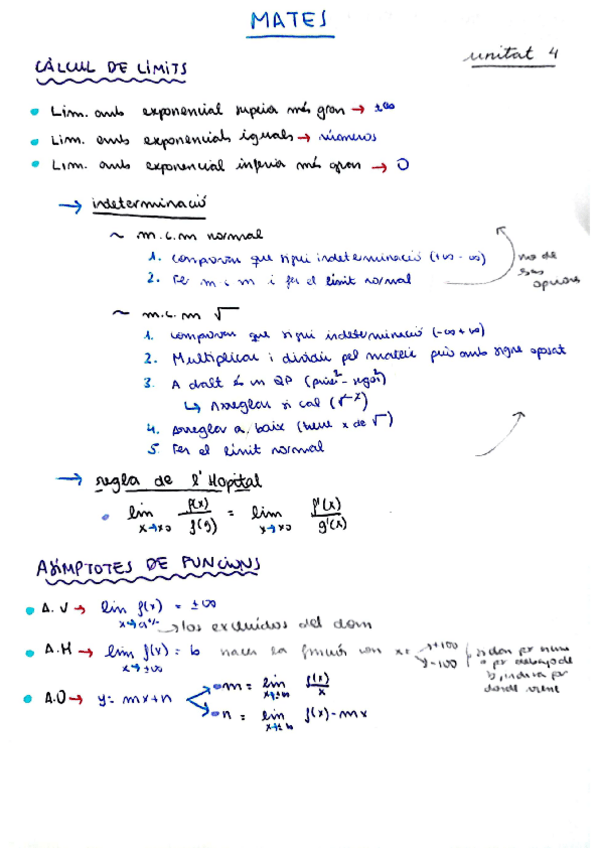 MATES
unitat 4
CÀLCUL DE LÍMITS
• Lim. amb exponencial superior més gran → ±∞
• Lim. amb exponencials iguals → números
• Lim. amb exponencial inferior més gran → 0
→ indeterminació
~ m.c.m normal
1. comprovem que sigui indeterminació (+∞ - ∞)
2. Fer m c m i fer el límit normal
~ m.c.m √
1. comprovem que sigui indeterminació (-∞ + ∞)
2. Multiplicar i dividir pel mateix però amb signe oposat
3. A dalt és un QP (primer² - segon²)
↳ Arreglar si cal (√‾x)
4. Arreglar a baix (treure x de √)
5. Fer el límit normal
→ regla de l'Hopital
• lim x→x0 f(x)/f(g) = lim x→x0 f'(x)/g'(x)
ASÍMPTOTES DE FUNCIONS
• A.V → lim x→a+/- f(x) = ±∞
→ los excluidos del dom
• A.H → lim x→±∞ f(x) = b hacer la función con x = +100 y -100
si dan por encima o por debajo de b, indica por donde viene
• A.O → y = mx+n
• m = lim x→±∞ f(x)/x
• n = lim x→±∞ f(x) - mx